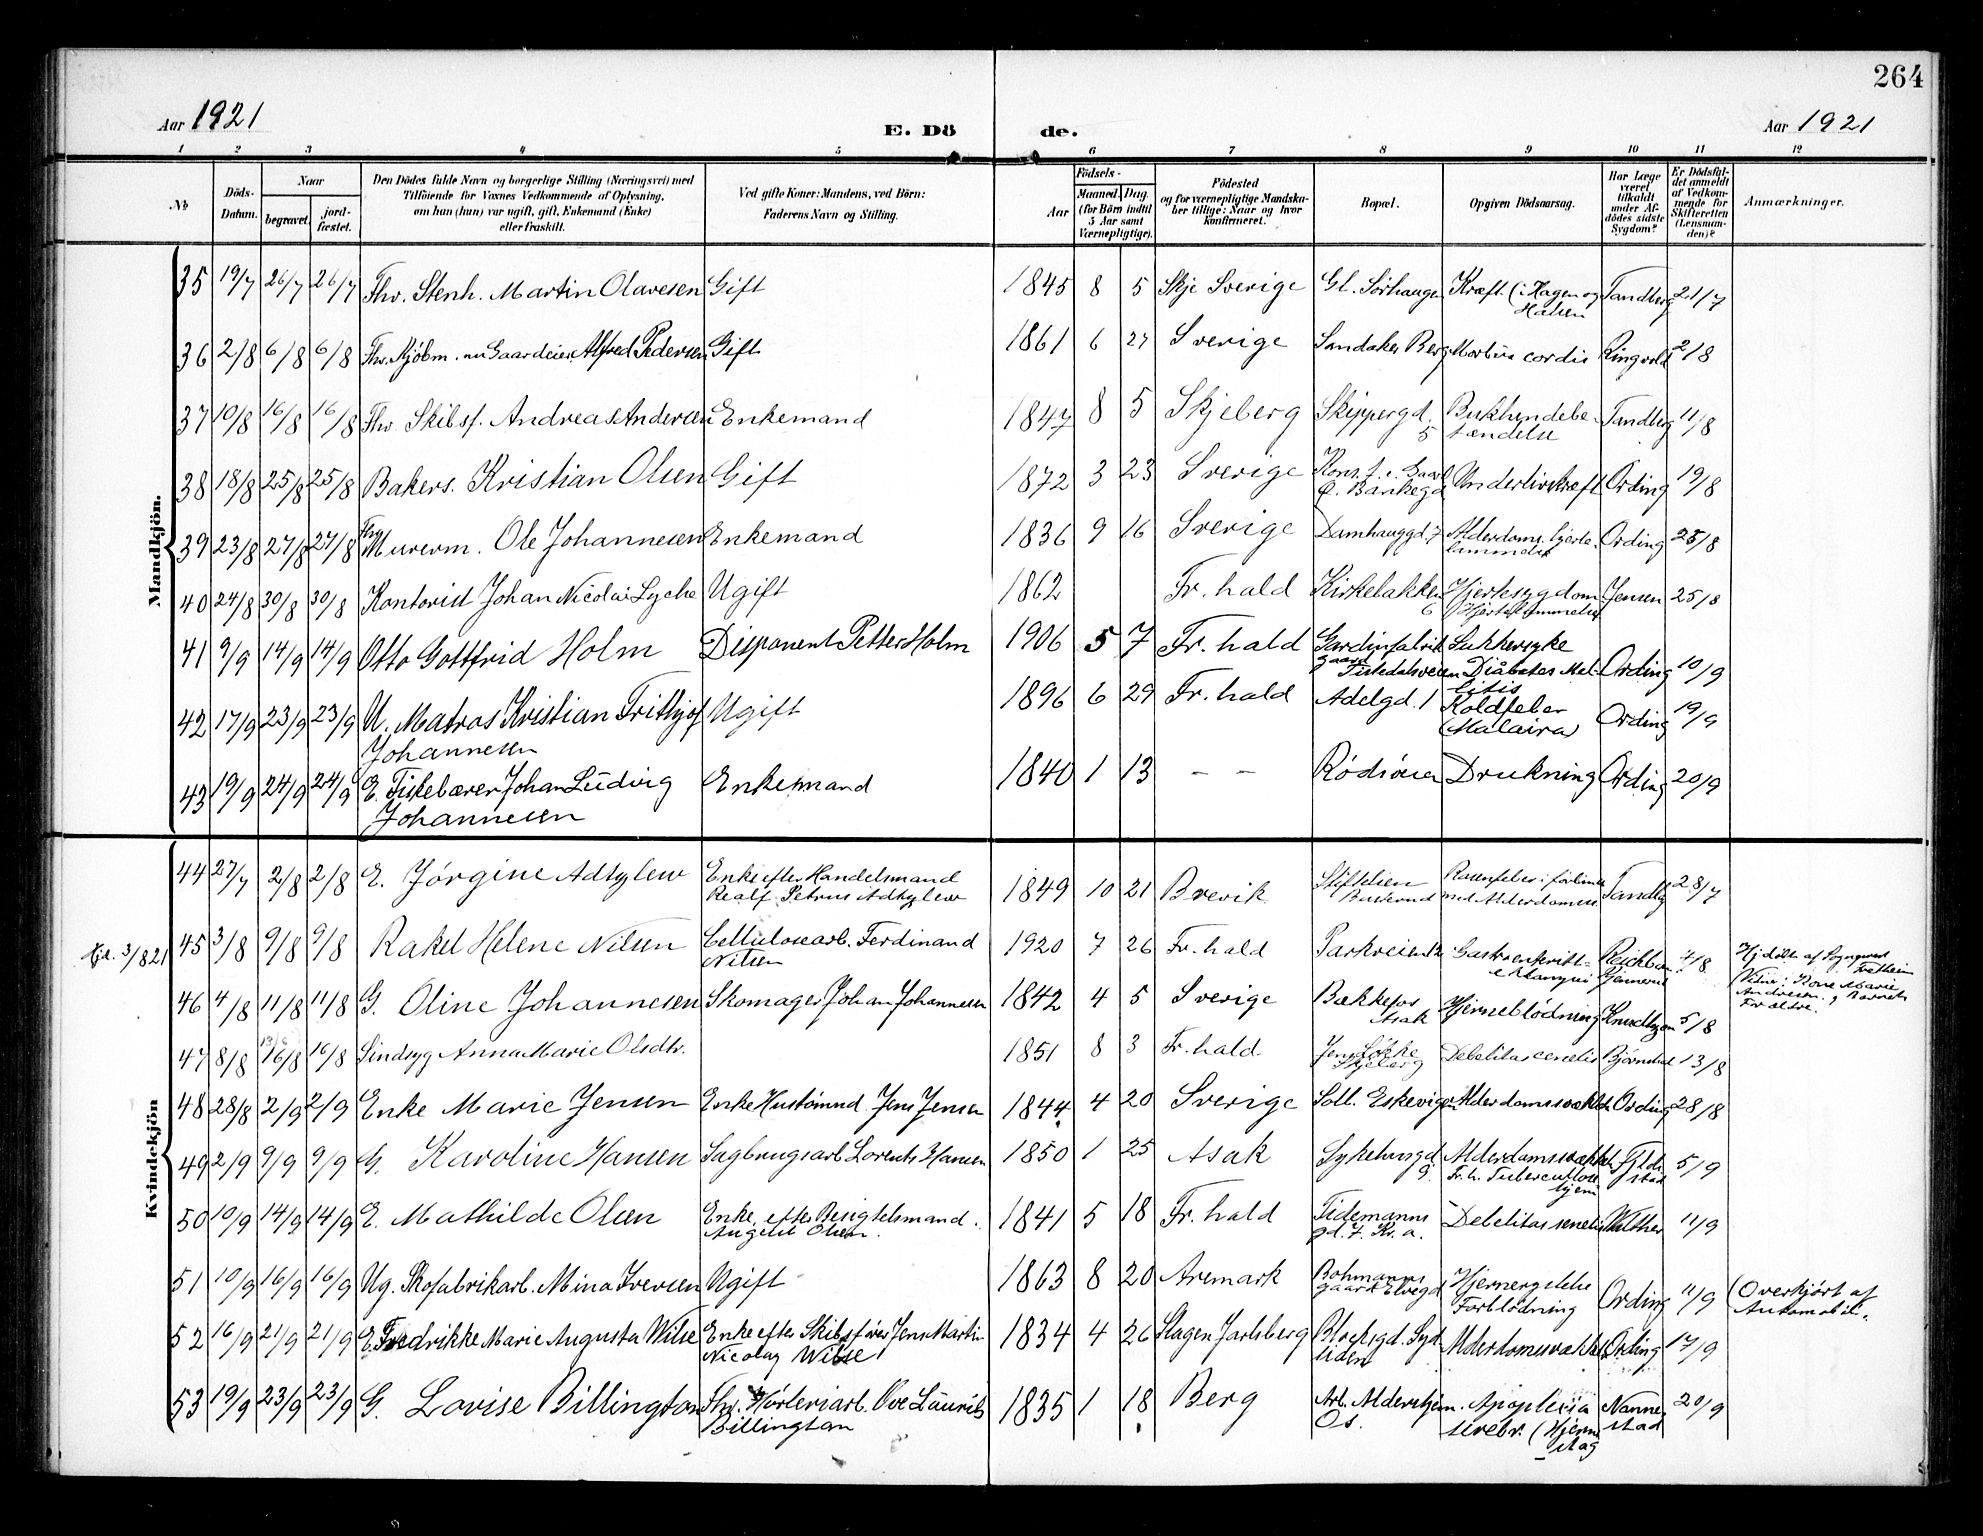 264
Aar 1921
E. Dö de.
Aar 1921
1 2 3 4 5 6 7 8 9 10 11 12
No.
Döds-Datum.
Naar
begravet.
jord-fæstet.
Den Dödes fulde Navn og borgerlige Stilling (Næringsvei) med
Tilföiende for Voxnes Vedkommende af Oplysning,
om han (hun) var ugift, gift, Enkemand (Enke)
eller fraskilt.
Ved gifte Koner: Mandens, ved Börn:
Faderens Navn og Stilling.
Födsels-
Aar
Maaned.
Dag.
(for Börn indtil
5 Aar samt
Værnepligtige).
Födested
og for værnepligtige Mandska-
ber tillige: Naar og hvor
konfirmeret.
Bopæl.
Opgiven Dödsaarsag.
Har Læge
været
tilkaldt
under Af-
dödes sidste
Sygdom?
Er Dödsfal-
det anmeldt
af Vedkom-
mende for
Skifteretten
(Lensman-
den)?
Anmærkninger.
Mandkjön.
35 19/7 26/7 26/7 Fhv. Stenh. Martin Olavesen Gift 1845 8 5 Skje Sverige Gl. Sörhaugen Kræft (i Hagen og Tandberg 21/7
Halsen
36 2/8 6/8 6/8 Fhv. Kjöbm. nu Gaardeier Alfred Pedersen Gift 1861 6 27 Sverige Sandaker Berg Morbus cordis Ringvold 2/8
37 10/8 16/8 16/8 Fhv. Skibsf. Andreas Andersen Enkemand 1847 8 5 Skjeberg Skippergd. Bukhindebe- Tandberg 11/8
5 tændelse
38 18/8 25/8 25/8 Bakers. Kristian Olsen Gift 1872 3 23 Sverige Underlivskræft Ording 19/8
Ö. Bankegd
39 23/8 27/8 27/8 Fhv. Murerm. Ole Johannesen Enkemand 1836 9 16 Sverige Damhauggd. 7 Alderdoms. hjerte- Ording 25/8
lammelse
40 24/8 30/8 30/8 Kontorist Johan Nicolai Lyche Ugift 1862 Fr. hald Kirkebakken Hjertesygdom Jensen 25/8
6 (Hjertelammelse
41 9/9 14/9 14/9 Otto Gottfrid Holm Disponent Petter Holm 1906 5 7 Fr. hald Gardinfabrik Sukkersyke Ording 10/9
gaard Tistedalsveien Diåbetes Mel-
litis
42 17/9 23/9 23/9 U. Matros Kristian Frithjof Ugift 1896 6 29 Fr. hald Adelgd. 1 Koldfeber Ording 19/9
Johannesen (Malaira)
43 19/9 24/9 24/9 E. Fiskebærer Johan Ludvig Enkemand 1840 1 13 – – Rödsöien Drukning Ording 20/9
Johannesen
Kvindekjön
44 27/7 2/8 2/8 E. Jörgine Adtylew Enke efter Handelsmand 1849 10 21 Brevik Stiftelsen Rosenfeber i forbin Tandbg 28/7
Realf Petrus Adtylew med Alderdomss.
Hjd. 3/8 21 45 3/8 9/8 9/8 Rakel Helene Nilsen Celluloscarb. Ferdinand 1920 7 26 Fr. hald Parkveien 4/8 Hjdöbt af
Nilsen Vidne: Kone Marie
Andresen, Barnets
Forældre.
46 4/8 11/8 11/8 G. Oline Johannesen Skomager Johan Johannesen 1842 4 5 Sverige Bækkefos Hjerneblödning Knudtzon 5/8
Asak
47 8/8 13/8 16/8 16/8 Sindsyg Anna Marie Olsdtr. 1851 8 3 Fr. hald. Jens Lökke Debelitas cenelis Björnstad 13/8
Skjeberg
48 28/8 2/9 2/9 Enke Marie Jensen Enke Hustömmd. Jens Jensen 1844 4 20 Sverige Soll. Eskevigen Alderdomssvakh. Ording 28/8
49 2/9 9/9 9/9 G. Karoline Hansen Sagbrugsarb. Lorents Hansen 1850 1 25 Asak Sykehusgd Alderdomssvækk. Fjeld- 5/9
9. Fr. h. Tuberculose stad
hjem
50 10/9 14/9 14/9 E. Mathilde Olsen Enke efter Besigtelsmand. 1841 5 18 Fr. hald Tidemanns Debelitas senelis Walther 11/9
August Olsen. gd. 7. Kr. a.
51 10/9 16/9 16/9 Ug. Skofabrikarb. Mina Iversen Ugift 1863 8 20 Aremark Bohmanns Hjernerystelse Ording 11/9 (Overkjört af
gaard Elvegd Forblödning Automobil.
52 16/9 21/9 21/9 E. Fredrikke Marie Augusta Wilse Enke efter Skibsförer Jens Martin 1834 4 26 Slagen Jarlsberg Blocksgd. Syd Alderdomssvækk. Ording 17/9
Nicolay Wilse siden
53 19/9 23/9 23/9 G. Lovise Billington Fhv. Hörleriarb. Ove Laurits 1835 1 18 Berg Arb. Aldershjem. Apoplexia Nanne- 20/9
Billington Os. cerebr. (Hjerne stad
slag